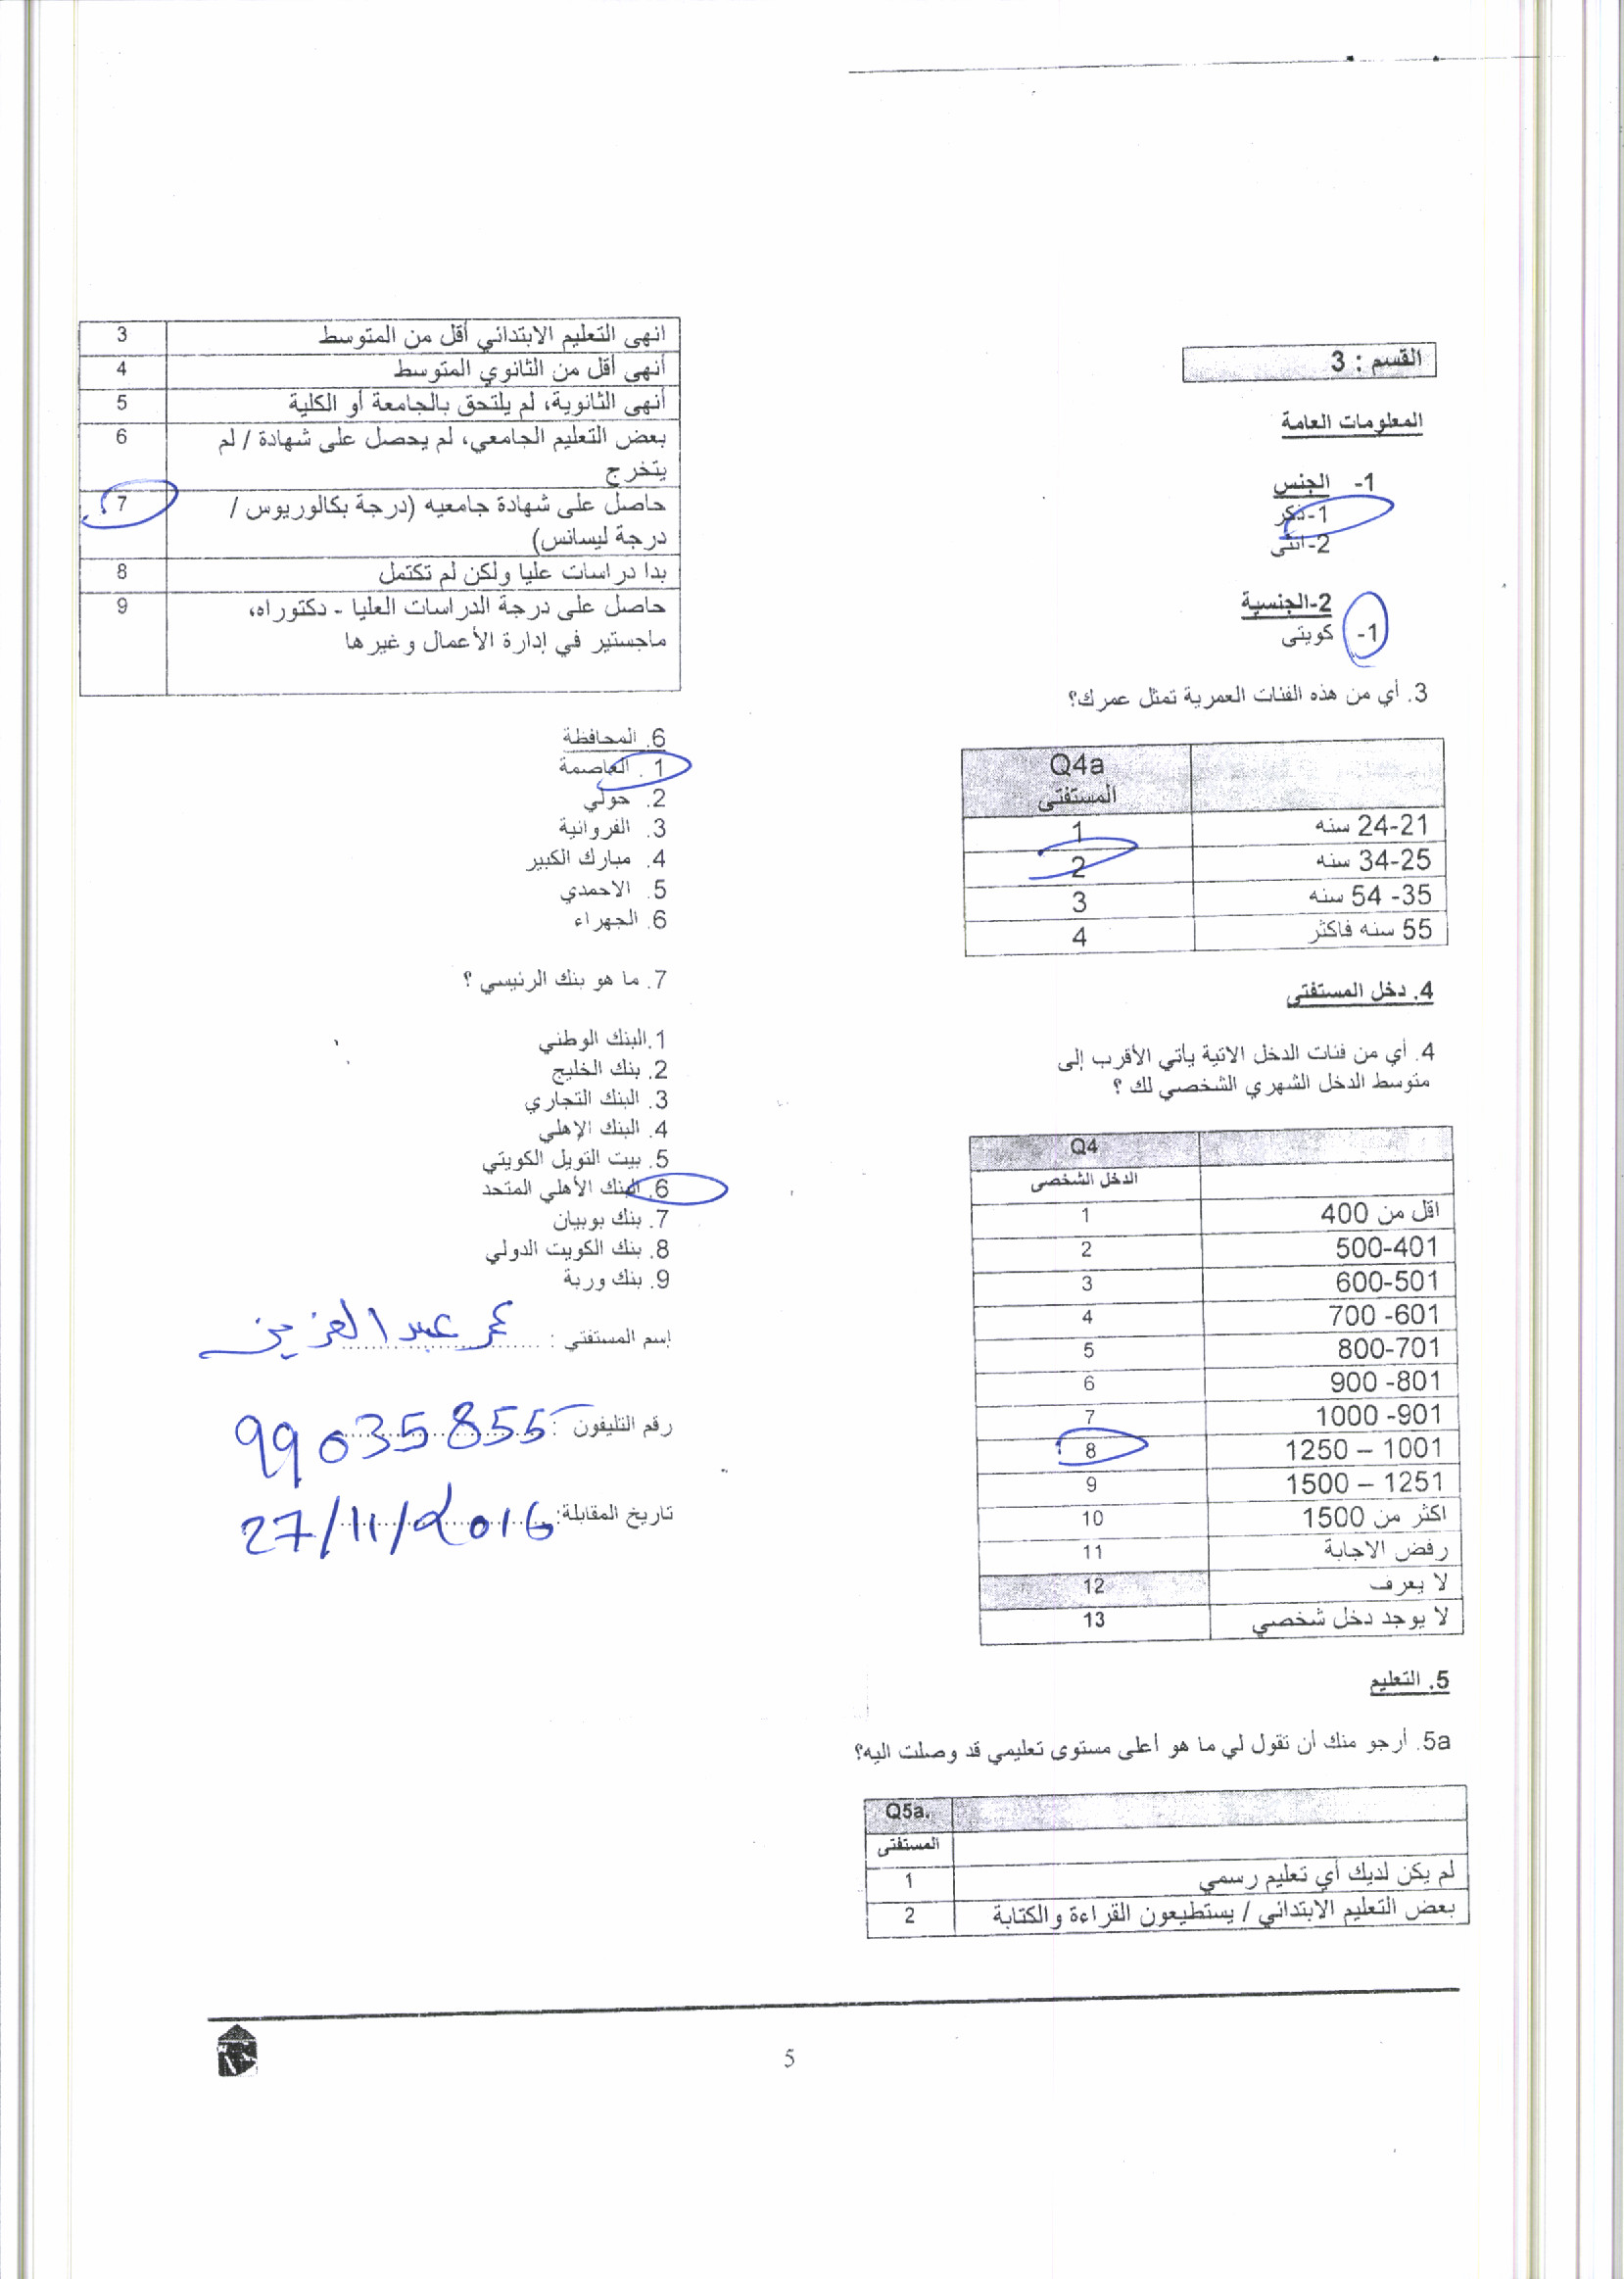 القسم : 3
المعلومات العامة
1- الجنس
1-ذكر
2-انثى
2-الجنسية
1- كويتى
3. أي من هذه الفئات العمرية تمثل عمرك؟
Q4a
المستفتى
24-21 سنه 1
34-25 سنه 2
54 -35 سنه 3
55 سنه فاكثر 4
4. دخل المستفتى
4. أي من فئات الدخل الاتية يأتي الأقرب إلى
متوسط الدخل الشهري الشخصي لك ؟
Q4
الدخل الشخصى
اقل من 400 1
500-401 2
600-501 3
700 -601 4
800-701 5
900 -801 6
1000 -901 7
1250 – 1001 8
1500 – 1251 9
اكثر من 1500 10
رفض الاجابة 11
لا يعرف 12
لا يوجد دخل شخصي 13
5. التعليم
5a. أرجو منك أن تقول لي ما هو أعلى مستوى تعليمي قد وصلت اليه؟
Q5a.
المستفتى
لم يكن لديك أي تعليم رسمي 1
بعض التعليم الابتدائي / يستطيعون القراءة والكتابة 2
انهى التعليم الابتدائي أقل من المتوسط 3
أنهى أقل من الثانوي المتوسط 4
أنهى الثانوية، لم يلتحق بالجامعة أو الكلية 5
بعض التعليم الجامعي، لم يحصل على شهادة / لم 6
يتخرج
حاصل على شهادة جامعيه (درجة بكالوريوس / 7
درجة ليسانس)
بدا دراسات عليا ولكن لم تكتمل 8
حاصل على درجة الدراسات العليا - دكتوراه، 9
ماجستير في إدارة الأعمال وغيرها
6. المحافظة
1. العاصمة
2. حولي
3. الفروانية
4. مبارك الكبير
5. الاحمدي
6. الجهراء
7. ما هو بنك الرئيسي ؟
1.البنك الوطني
2. بنك الخليج
3. البنك التجاري
4. البنك الاهلي
5. بيت التويل الكويتي
6. البنك الأهلي المتحد
7. بنك بوبيان
8. بنك الكويت الدولي
9. بنك وربة
إسم المستفتي : عمر عبد العزيز
رقم التليفون : 99035855
تاريخ المقابلة: 27/11/2016
5